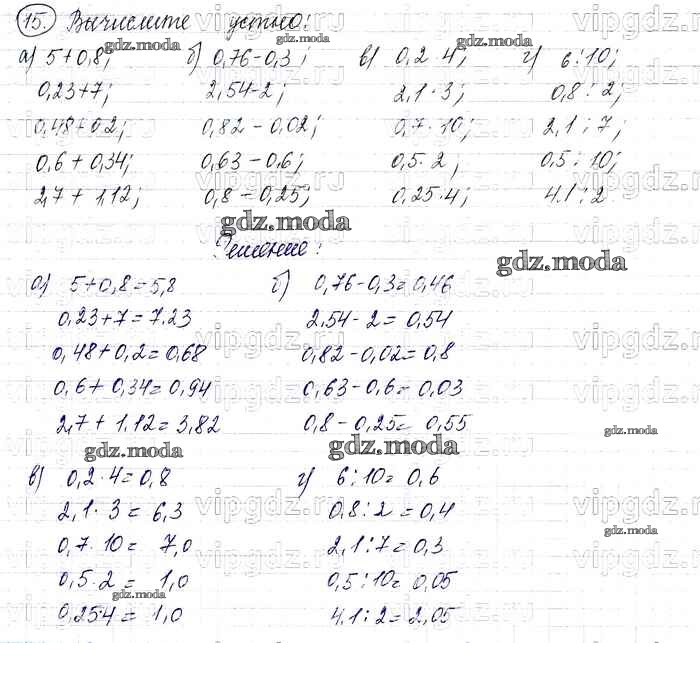 15. Вычислите устно:
а) 5+0,8; б) 0,76-0,3; в) 0,2·4; г) 6:10;
0,23+7; 2,54-2; 2,1·3; 0,8:2;
0,48+0,2; 0,82-0,02; 0,7·10; 2,1:7;
0,6+0,34; 0,63-0,6; 0,5·2; 0,5:10;
2,7+1,12; 0,8-0,25; 0,25·4; 4.1:2
gdz.moda
Решение:
gdz.moda
а) 5+0,8=5,8 б) 0,76-0,3=0,46
0,23+7=7.23 2,54-2=0,54
0,48+0,2=0,68 0,82-0,02=0,8
0,6+0,34=0,94 0,63-0,6=0,03
2,7+1,12=3,82 0,8-0,25=0,55
gdz.moda gdz.moda gdz.moda
в) 0,2·4=0,8 г) 6:10=0,6
2,1·3=6,3 0,8:2=0,4
0,7·10=7,0 2,1:7=0,3
0,5·2=1,0 0,5:10=0,05
0,25·4=1,0 4.1:2=2,05